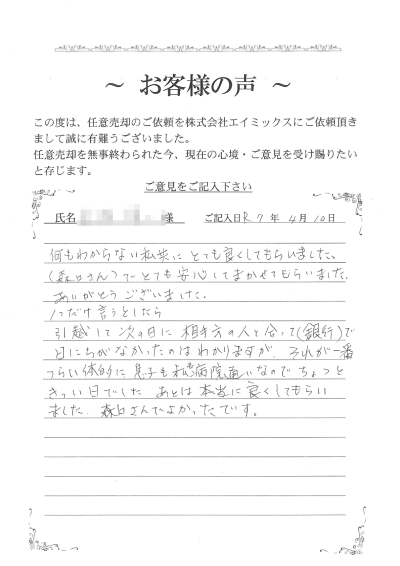 ～ お客様の声 ～
この度は、任意売却のご依頼を株式会社エイミックスにご依頼頂き
まして誠に有難うございました。
任意売却を無事終わられた今、現在の心境・ご意見を受け賜りたい
と存じます。
ご意見をご記入下さい
氏名 様 ご記入日R7年 4月10日
何もわからない私共に とても良くしてもらいました。
(森口さん)で とても安心してまかせてもらいました。
ありがとうございました。
1つだけ言うとしたら
引越して次の日に 相手方の人と会って(銀行)で
日にちがなかったのはわかりますが、それが一番
つらい体的に 息子も私も病院通いなので ちょっと
きつい日でした あとは本当に良くしてもらい
ました。森口さんでよかったです。